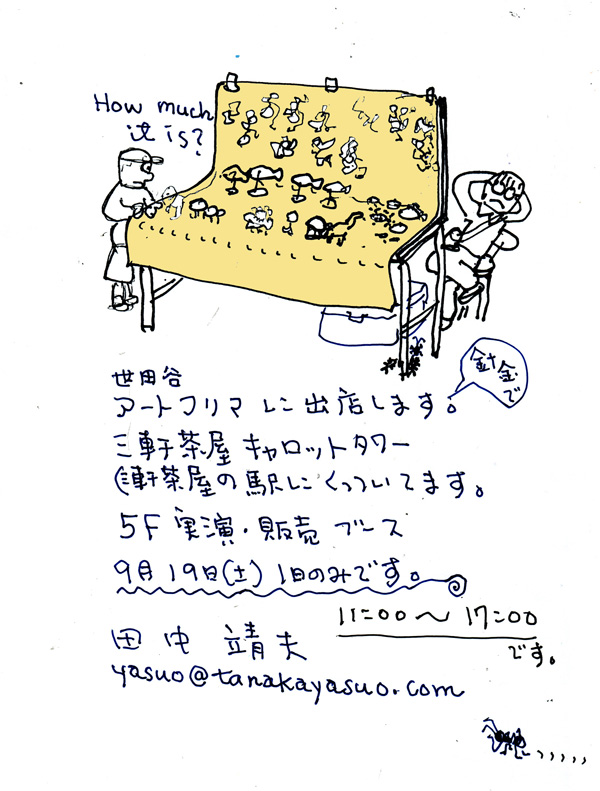 How much
it is?
針金で
世田谷
アートフリマ に 出店します。
三軒茶屋 キャロットタワー
(三軒茶屋の駅にくっついてます。
5F 実演・販売 ブース
9月19日(土) 1日のみです。
11:00～17:00
です。
田中 靖夫
yasuo@tanakayasuo.com